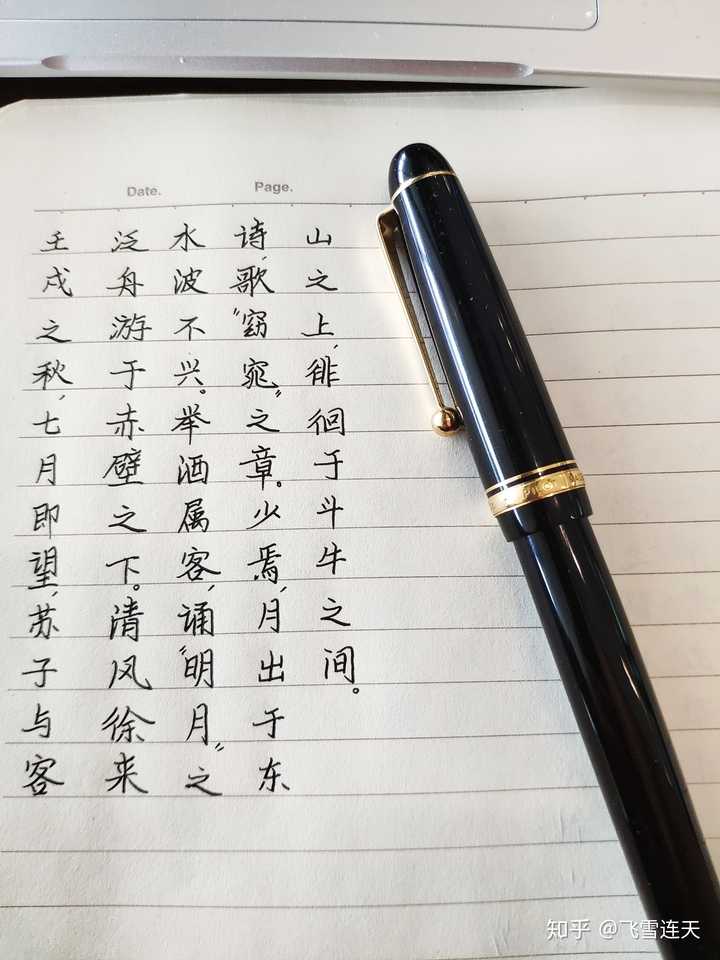 Date.
Page.
壬戌之秋，七月即望，苏子与客
泛舟游于赤壁之下。清风徐来
水波不兴。举酒属客，诵“明月”之
诗，歌“窈窕”之章。少焉，月出于东
山之上，徘徊于斗牛之间。
知乎 @飞雪连天